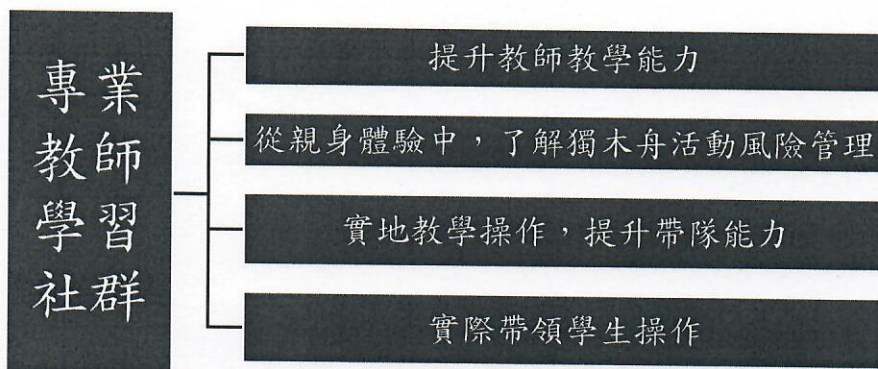 專業
教師
學習
社群
提升教師教學能力
從親身體驗中，了解獨木舟活動風險管理
實地教學操作，提升帶隊能力
實際帶領學生操作